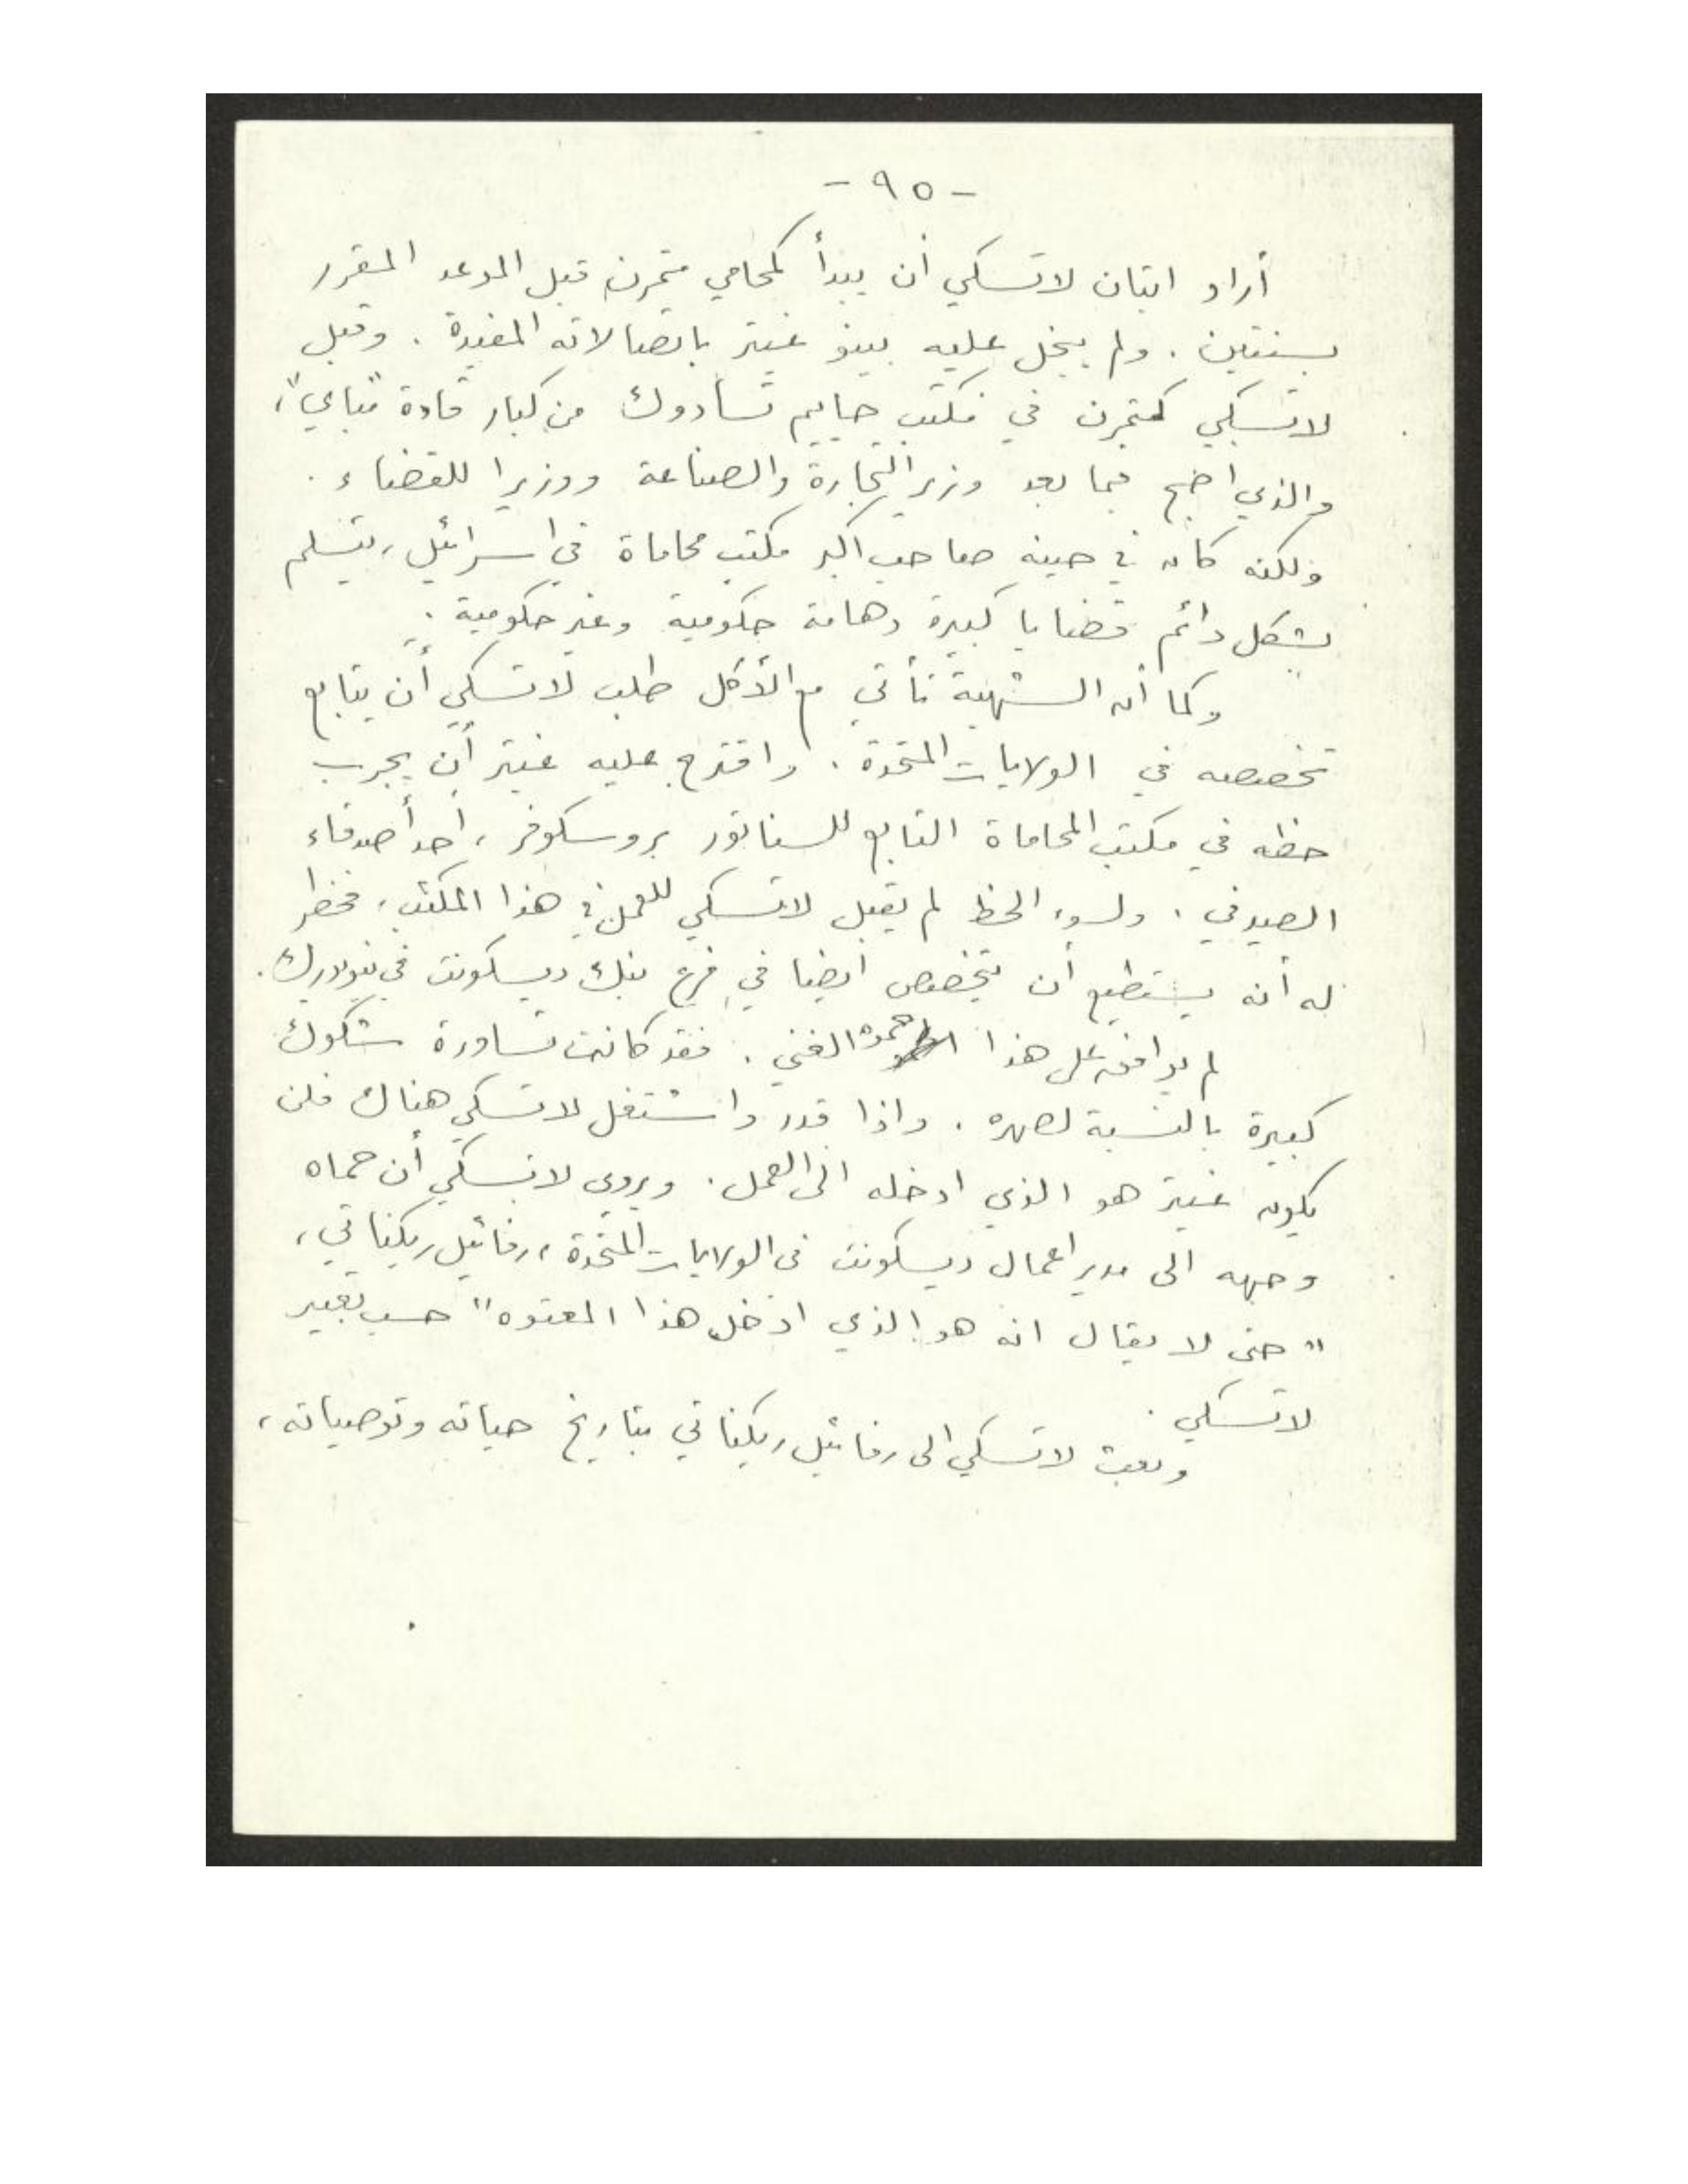 - ٩٥ -
أراد ايتان لاتسكي أن يبدأ كمحامي متمرن قبل الموعد المقرر
بسنتين . ولم يبخل عليه بينو غنتر باتصالاته المفيدة . وقبل
لاتسكي كمتمرن في مكتب حاييم تسادوك من كبار قادة "مباي"،
والذي اصبح فيما بعد وزير التجارة والصناعة ووزيرا للقضاء .
ولكنه كان في حينه صاحب اكبر مكتب محاماة في اسرائيل، يتسلم
بشكل دائم قضايا كبيرة وهامة حكومية وغير حكومية .
وكما أن الشهية تأتي مع الأكل طلب لاتسكي أن يتابع
تخصصه في الولايات المتحدة . واقترح عليه غنتر أن يجرب
حظه في مكتب المحاماة التابع للسناتور بروسكوفر ، أحد أصدقاء
الصيرفي . ولسوء الحظ لم يقبل لاتسكي للعمل في هذا المكتب ، فخطر
له أنه يستطيع أن يتخصص أيضا في فرع بنك ديسكونت في نيويورك .
لم يوافق على هذا حموه الغني . فقد كانت تساوره شكوك
كبيرة بالنسبة لصهره . واذا قدر واشتغل لاتسكي هناك فلن
يكون غنتر هو الذي ادخله الى العمل . ويروى لاتسكي أن حماه
وجهه الى مدير اعمال ديسكونت في الولايات المتحدة ، رفائيل ريكناتي ،
" حتى لا يقال انه هو الذي ادخل هذا المعتوه " حسب تعبير
لاتسكي .
وبعث لاتسكي الى رفائيل ريكناتي بتاريخ حياته وتوصياته ،